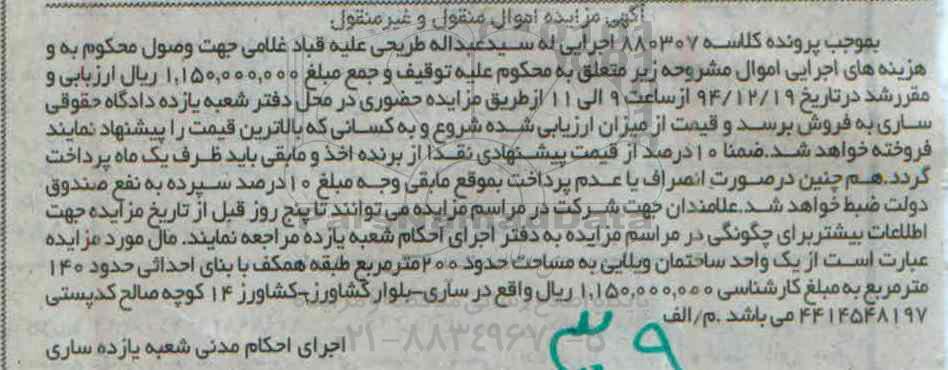 آگهی مزایده اموال منقول و غیرمنقول
بموجب پرونده کلاسه ۸۸۰۳۰۷ اجرایی له سیدعبداله طریحی علیه قباد غلامی جهت وصول محکوم به و
هزینه های اجرایی اموال مشروحه زیر متعلق به محکوم علیه توقیف و جمع مبلغ ۱,۱۵۰,۰۰۰,۰۰۰ ریال ارزیابی و
مقرر شد در تاریخ ۹۴/۱۲/۱۹ از ساعت ۹ الی ۱۱ از طریق مزایده حضوری در محل دفتر شعبه یازده دادگاه حقوقی
ساری به فروش برسد و قیمت از میزان ارزیابی شده شروع و به کسانی که بالاترین قیمت را پیشنهاد نمایند
فروخته خواهد شد.ضمنا ۱۰درصد از قیمت پیشنهادی نقدا از برنده اخذ و مابقی باید ظرف یک ماه پرداخت
گردد.هم چنین در صورت انصراف یا عدم پرداخت بموقع مابقی وجه مبلغ ۱۰درصد سپرده به نفع صندوق
دولت ضبط خواهد شد.علامندان جهت شرکت در مراسم مزایده می توانند تا پنج روز قبل از تاریخ مزایده جهت
اطلاعات بیشتر برای چگونگی در مراسم مزایده به دفتر اجرای احکام شعبه یازده مراجعه نمایند. مال مورد مزایده
عبارت است از یک واحد ساختمان ویلایی به مساحت حدود ۲۰۰مترمربع طبقه همکف با بنای احداثی حدود ۱۴۰
مترمربع به مبلغ کارشناسی ۱,۱۵۰,۰۰۰,۰۰۰ ریال واقع در ساری-بلوار کشاورز-کشاورز ۱۴ کوچه صالح کدپستی
۴۴۱۴۵۴۸۱۹۷ می باشد .م/الف
۰۲۱-۸۸۳۴۹۶۷۰-۵
اجرای احکام مدنی شعبه یازده ساری